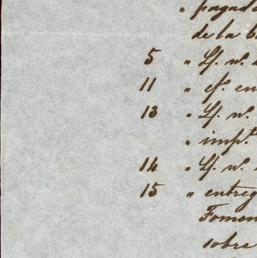 " pagad
de la C
5 " Lf. nº.
11 " ef. en
13 " Lf. nº.
" impt.
14 " Lf. nº.
15 " entreg
Fomen
sobre